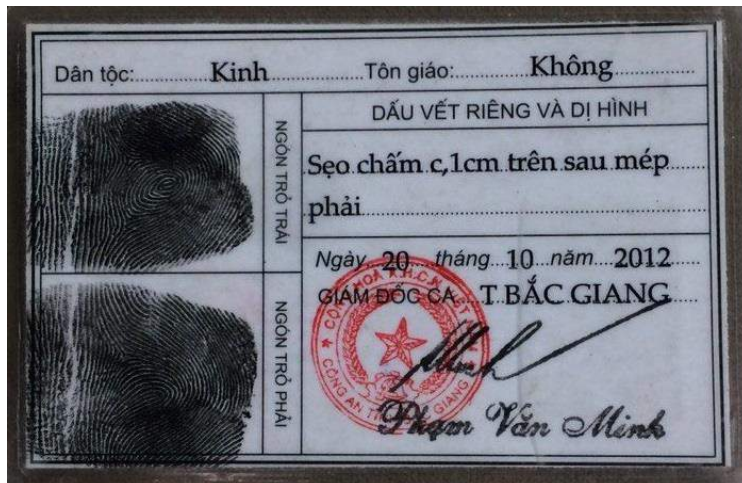 Dân tộc: Kinh Tôn giáo: Không
NGÓN TRỎ TRÁI
DẤU VẾT RIÊNG VÀ DỊ HÌNH
Sẹo chấm c,1cm trên sau mép
phải
Ngày 20 tháng 10 năm 2012
GIÁM ĐỐC CA T BẮC GIANG
NGÓN TRỎ PHẢI
CÔNG AN T GIANG
Phạm Văn Minh